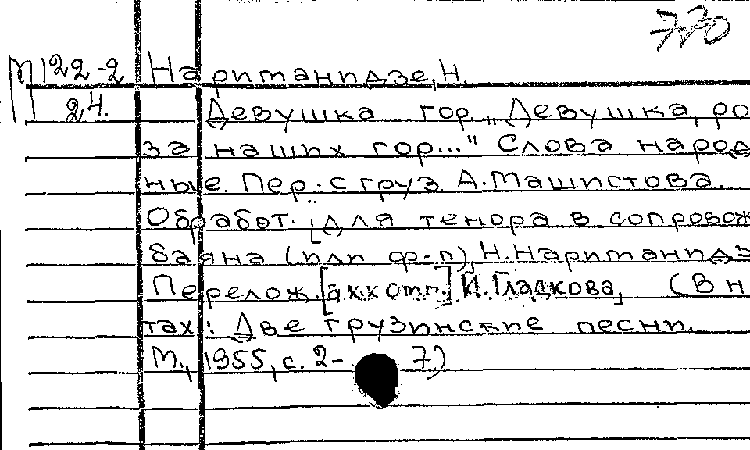 770
М 122-2 Нариманидзе, Н.
24. Девушка гор. „Девушка, ро
за наших гор..." Слова народ
ные. Пер. с груз А. Машистова.
Обработ. [для тенора в сопровож
баяна (или ф-п), Н. Нариманидз
Перелож. [аккомп.] И. Гладкова, (В н
тах: Две грузинские песни.
М., 1955, с. 2-7)